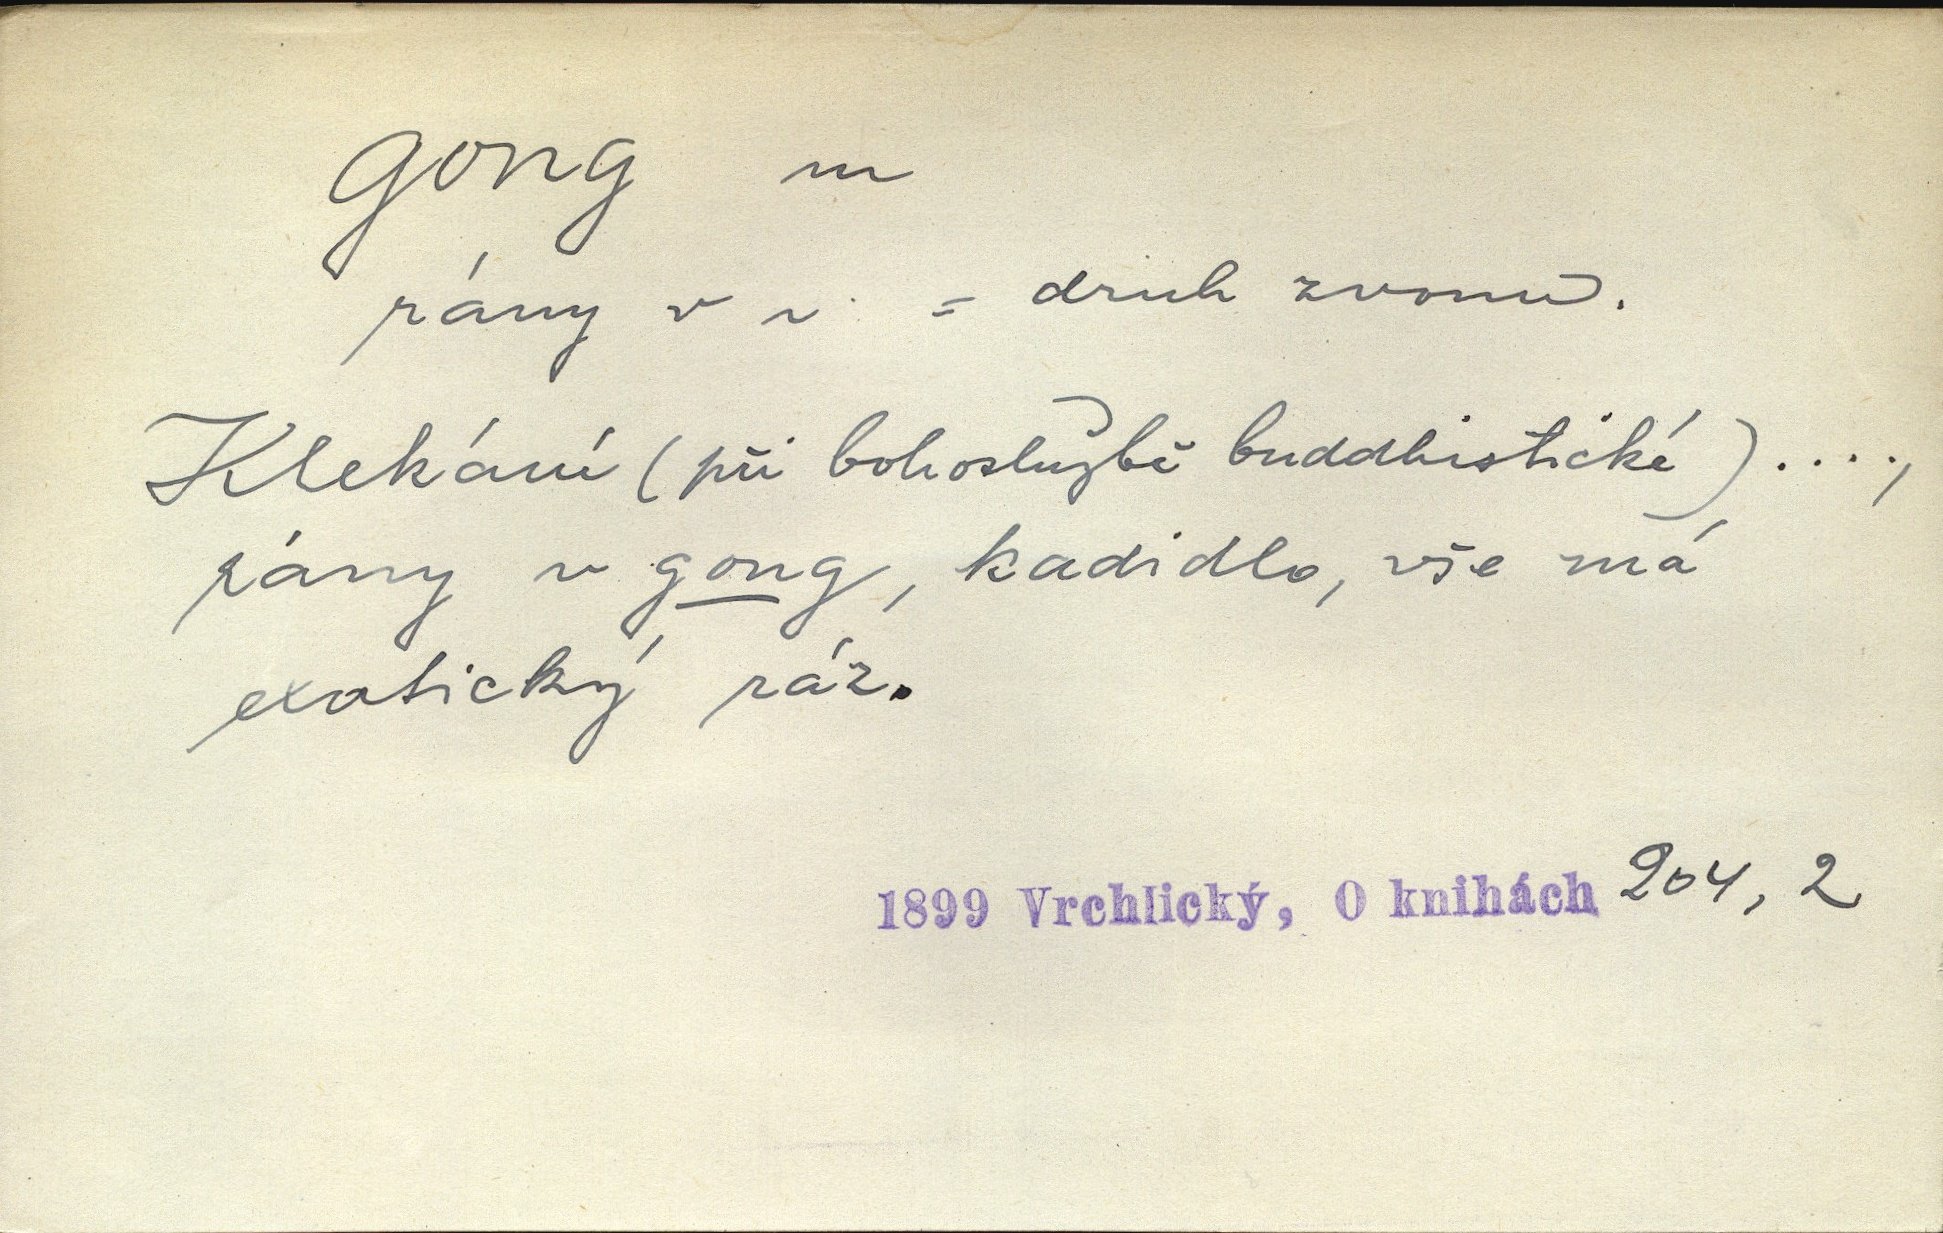 gong m
rány v ~ = druh zvonu.
Klekání (při bohoslužbě buddhistické) ....,
rány v gong, kadidlo, vše má
exotický ráz.
1899 Vrchlický, O knihách 204, 2